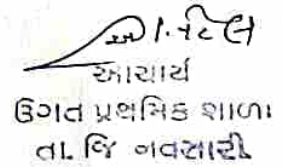 આચાર્ય
ઉગત પ્રથમિક શાળા
તા. જિ નવસારી.